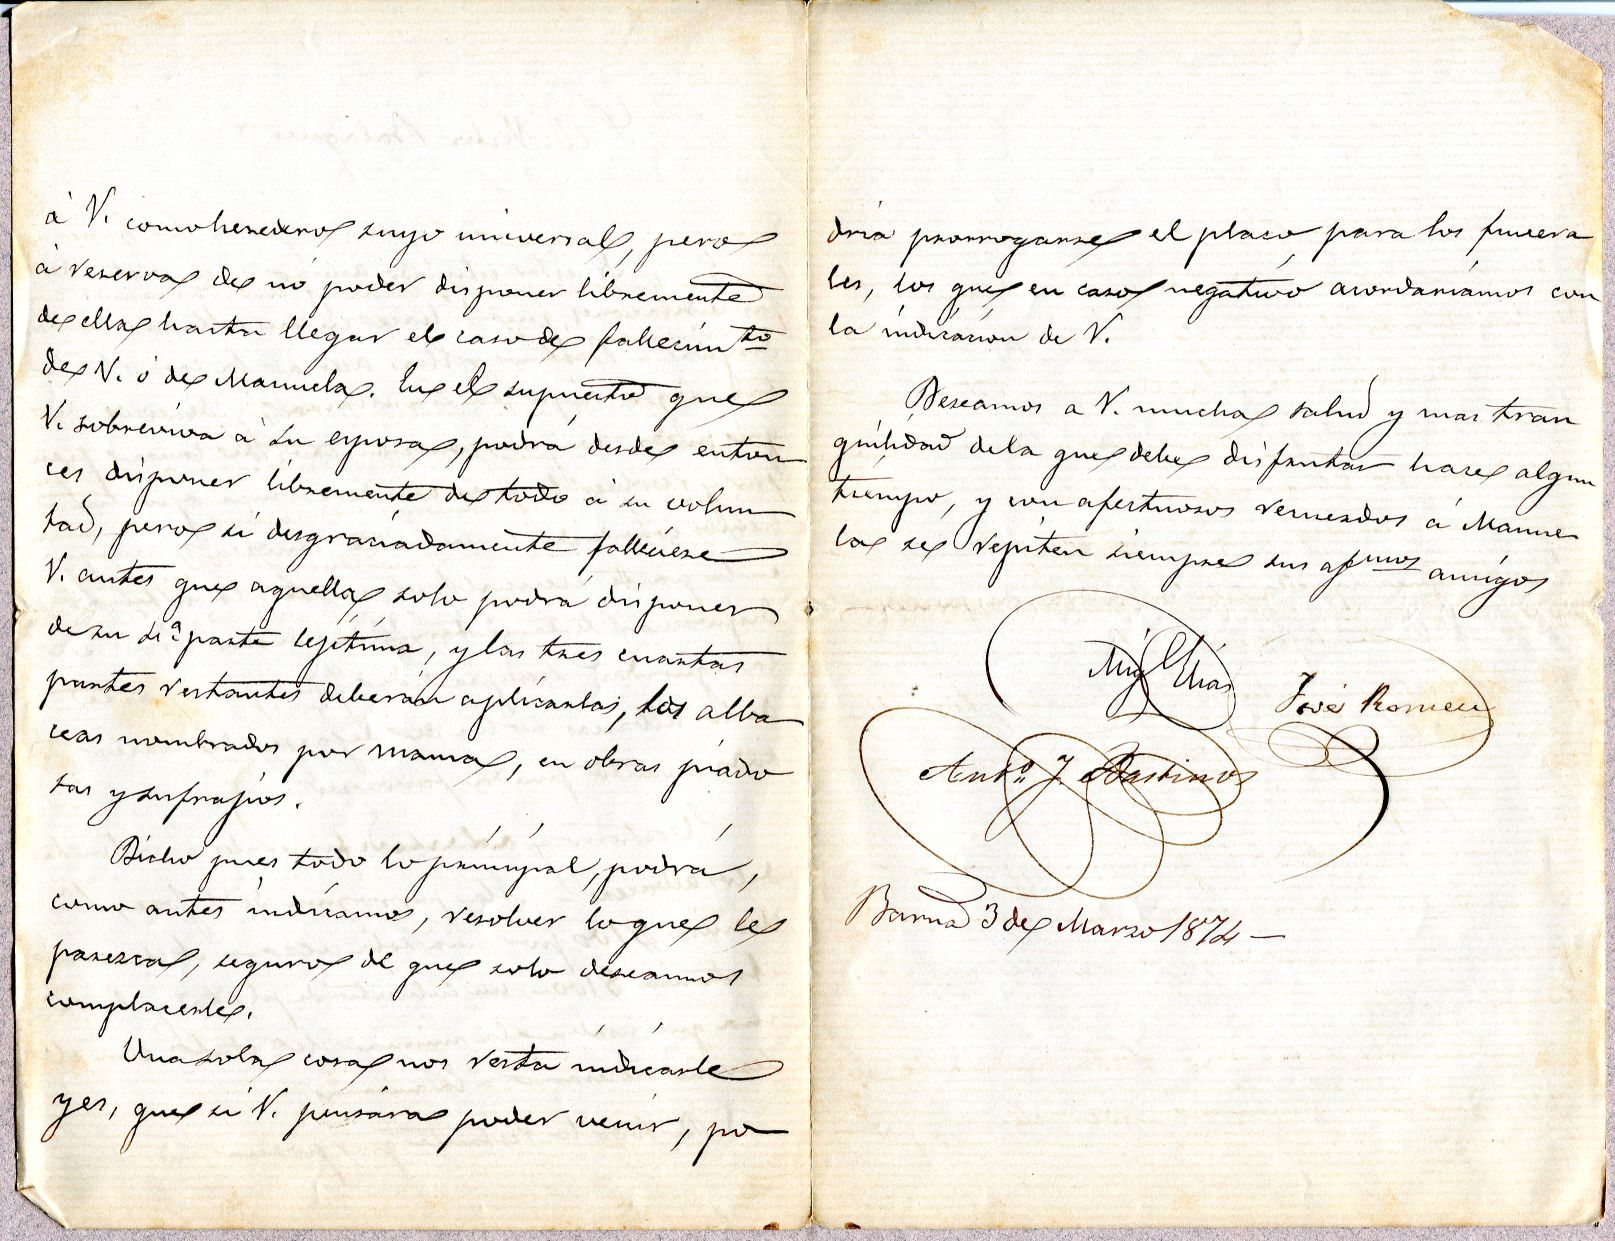 à V. como heredero suyo universal, pero
à reserva de no poder disponer libremente
de ella hasta llegar el caso de fallecimto
de V. ó de Manuela. En el supuesto que
V. sobreviva à su esposa, podrá desde enton
ces disponer libremente de todo à su volun
tad, pero si desgraciadamente falleciese
V. antes que aquella solo podrá disponer
de su 4ª parte legítima, y las tres cuartas
partes restantes deberán aplicarlas, los alba
ceas nombrados por mama, en obras piado
sas y sufragios.
Dicho pues todo lo principal, podrá,
como antes indicamos, resolver lo que le
parezca, seguro de que solo deseamos
complacerle.
Una sola cosa nos resta indicarle
y es, que si V. pensára poder venir, po
dría prorrogarse el plazo para los funera
les, los que en caso negativo acordaríamos con
la indicacion de V.
Deseamos a V. mucha salud y mas tran
quilidad de la que debe disfrutar hace algun
tiempo, y con afectuosos recuerdos á Manue
la se repiten siempre sus afmos amigos
Migl Elias
José Romeu
Anto J. Bastinos
Barna 3 de Marzo 1874—